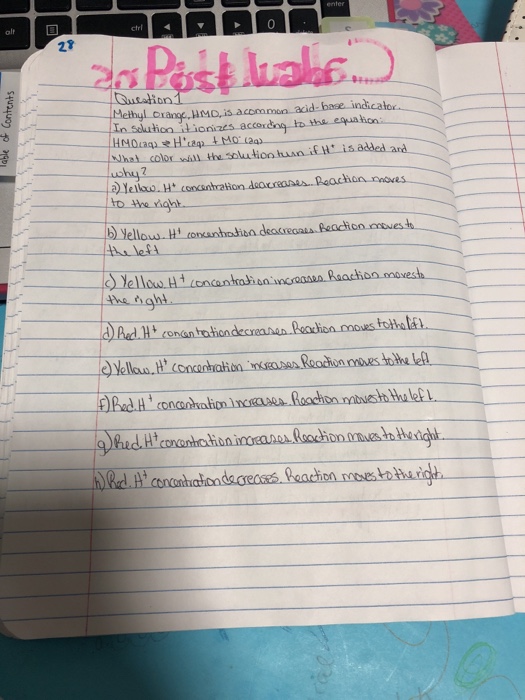 enter
alt
ctrl
0
28
Table of Contents
Post Labs
Question 1
Methyl orange, HMO, is a common acid-base indicator.
In solution it ionizes according to the equation:
HMO(aq) ⇌ H⁺(aq) + MO⁻(aq)
What color will the solution turn if H⁺ is added and
why?
a) Yellow. H⁺ concentration deacreases. Reaction moves
to the right.
b) Yellow. H⁺ concentration deacreases Reaction moves to
the left
c) Yellow H⁺ concentration increases. Reaction moves to
the right.
d) Red. H⁺ concentration decreases Reaction moves to the left.
e) Yellow. H⁺ concentration increases Reaction moves to the left
f) Red. H⁺ concentration increases. Reaction moves to the left.
g) Red. H⁺ concentration increases. Reaction moves to the right.
h) Red. H⁺ concentration decreases. Reaction moves to the right.